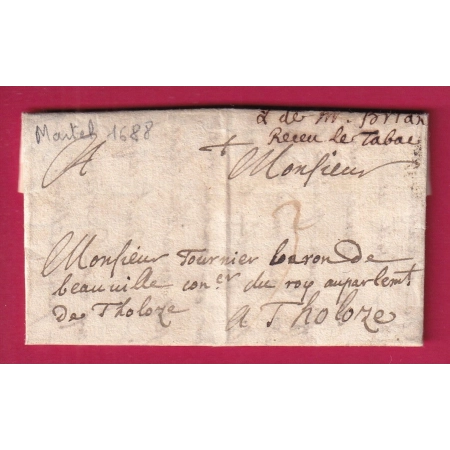 2 de mr. Brian
Martel 1688
Receu le Tabac
A + Monsieur
3
Monsieur Tournier baron de
beauville con.er du roy auparlemt
de Tholoze
a Tholoze